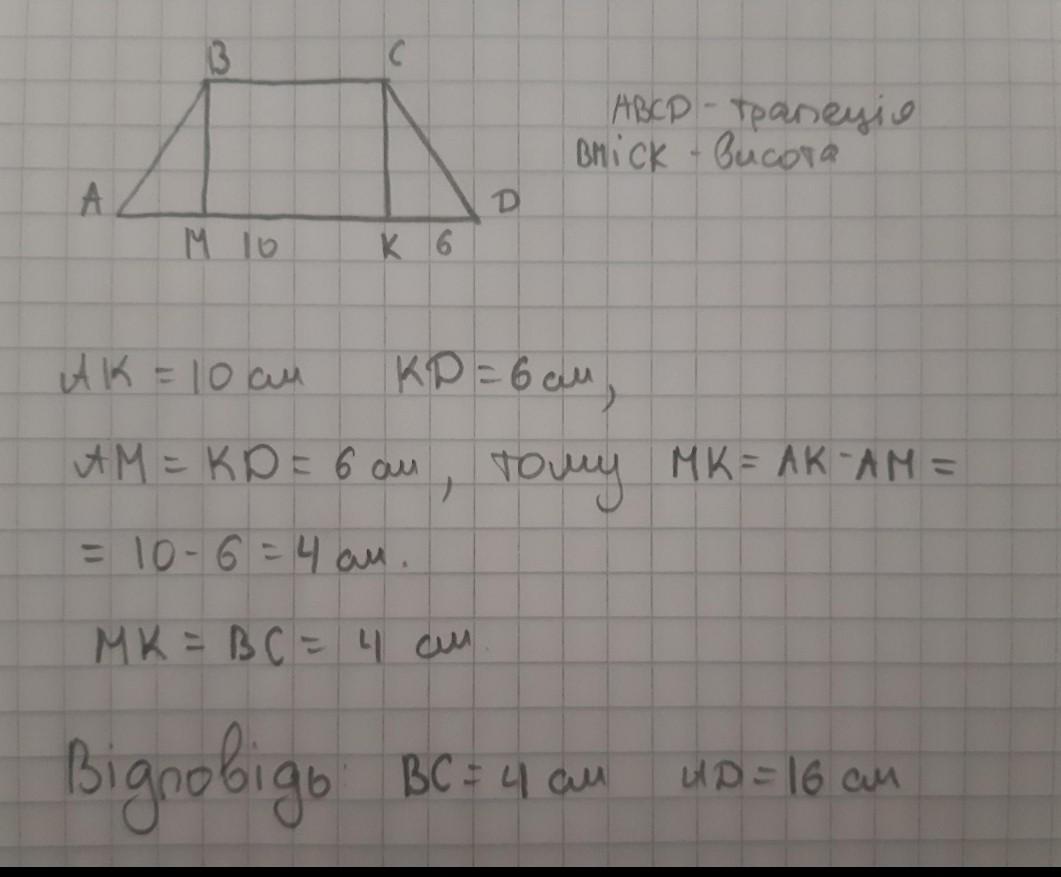 B C
ABCD - трапеція
BM і CK - висота
A D
M 10 K 6
AK = 10 см KD = 6 см,
AM = KD = 6 см, тому MK = AK - AM =
= 10 - 6 = 4 см.
MK = BC = 4 см.
Відповідь: BC = 4 см AD = 16 см